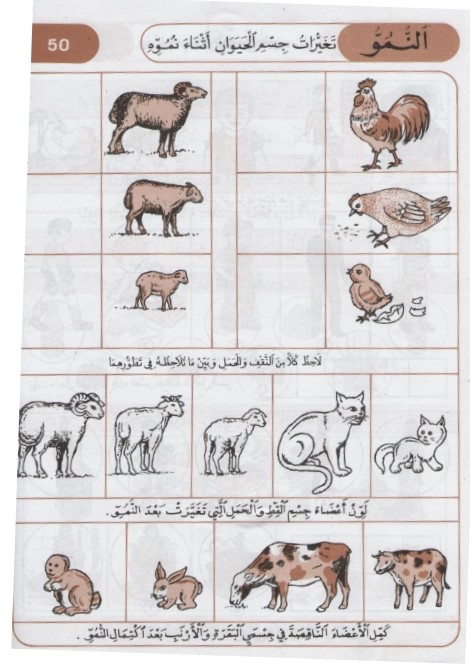 اَلنُّمُوُّ
تَغَيُّرَاتُ جِسْمِ الْحَيَوَانِ أَثْنَاءَ نُمُوِّهِ
50
لَاحِظْ كُلاًّ مِنَ النَّقْفِ وَالْحَمَلِ وَبَيِّنْ مَا تُلَاحِظُهُ فِي تَطَوُّرِهِمَا
لَوِّنْ أَعْضَاءَ جِسْمِ الْقِطِّ وَالْحَمَلِ الَّتِي تَغَيَّرَتْ بَعْدَ النُّمُوِّ.
كَمِّلِ الْأَعْضَاءَ النَّاقِصَةَ فِي جِسْمَيِ الْبَقَرَةِ وَالْأَرْنَبِ بَعْدَ اكْتِمَالِ النُّمُوِّ.